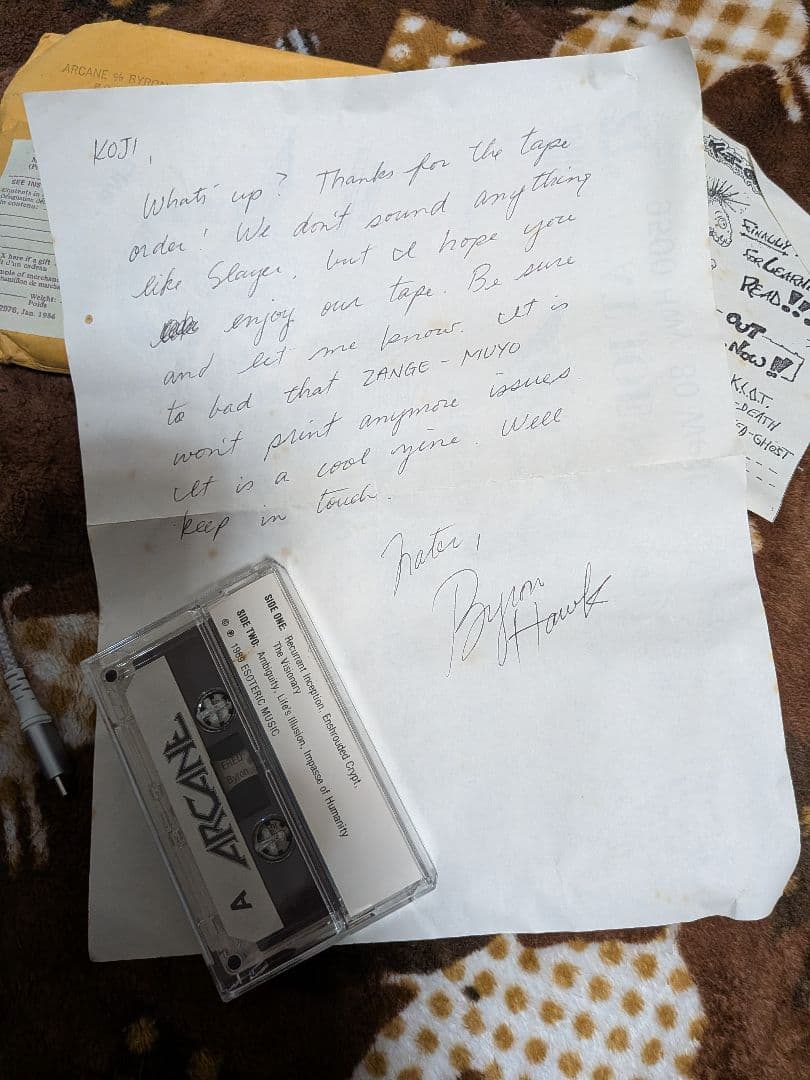 ARCANE % BYRON
KOJI,
What's up? Thanks for the tape
order! We don't sound anything
like Slayer, but I hope you
enjoy our tape. Be sure
and let me know. It is
to bad that ZANGE-MUYO
won't print anymore issues
It is a cool zine. Well
keep in touch.
Later,
Byron
Hawk
SIDE ONE: Recurrant Inception, Enshrouded Crypt,
The Visionary
SIDE TWO: Ambiguity, Life's Illusion, Impasse of Humanity
© ℗ 1989 ESOTERIC MUSIC
A ARCANE
Byron
SEE INS
Contents in
X here if a gift
t d'un cadeau
Weight:
Poids
2976, Jan. 1986
FINALLY
READ!!!
OUT
NOW!!
K.I.O.T.
DEATH
GHOST